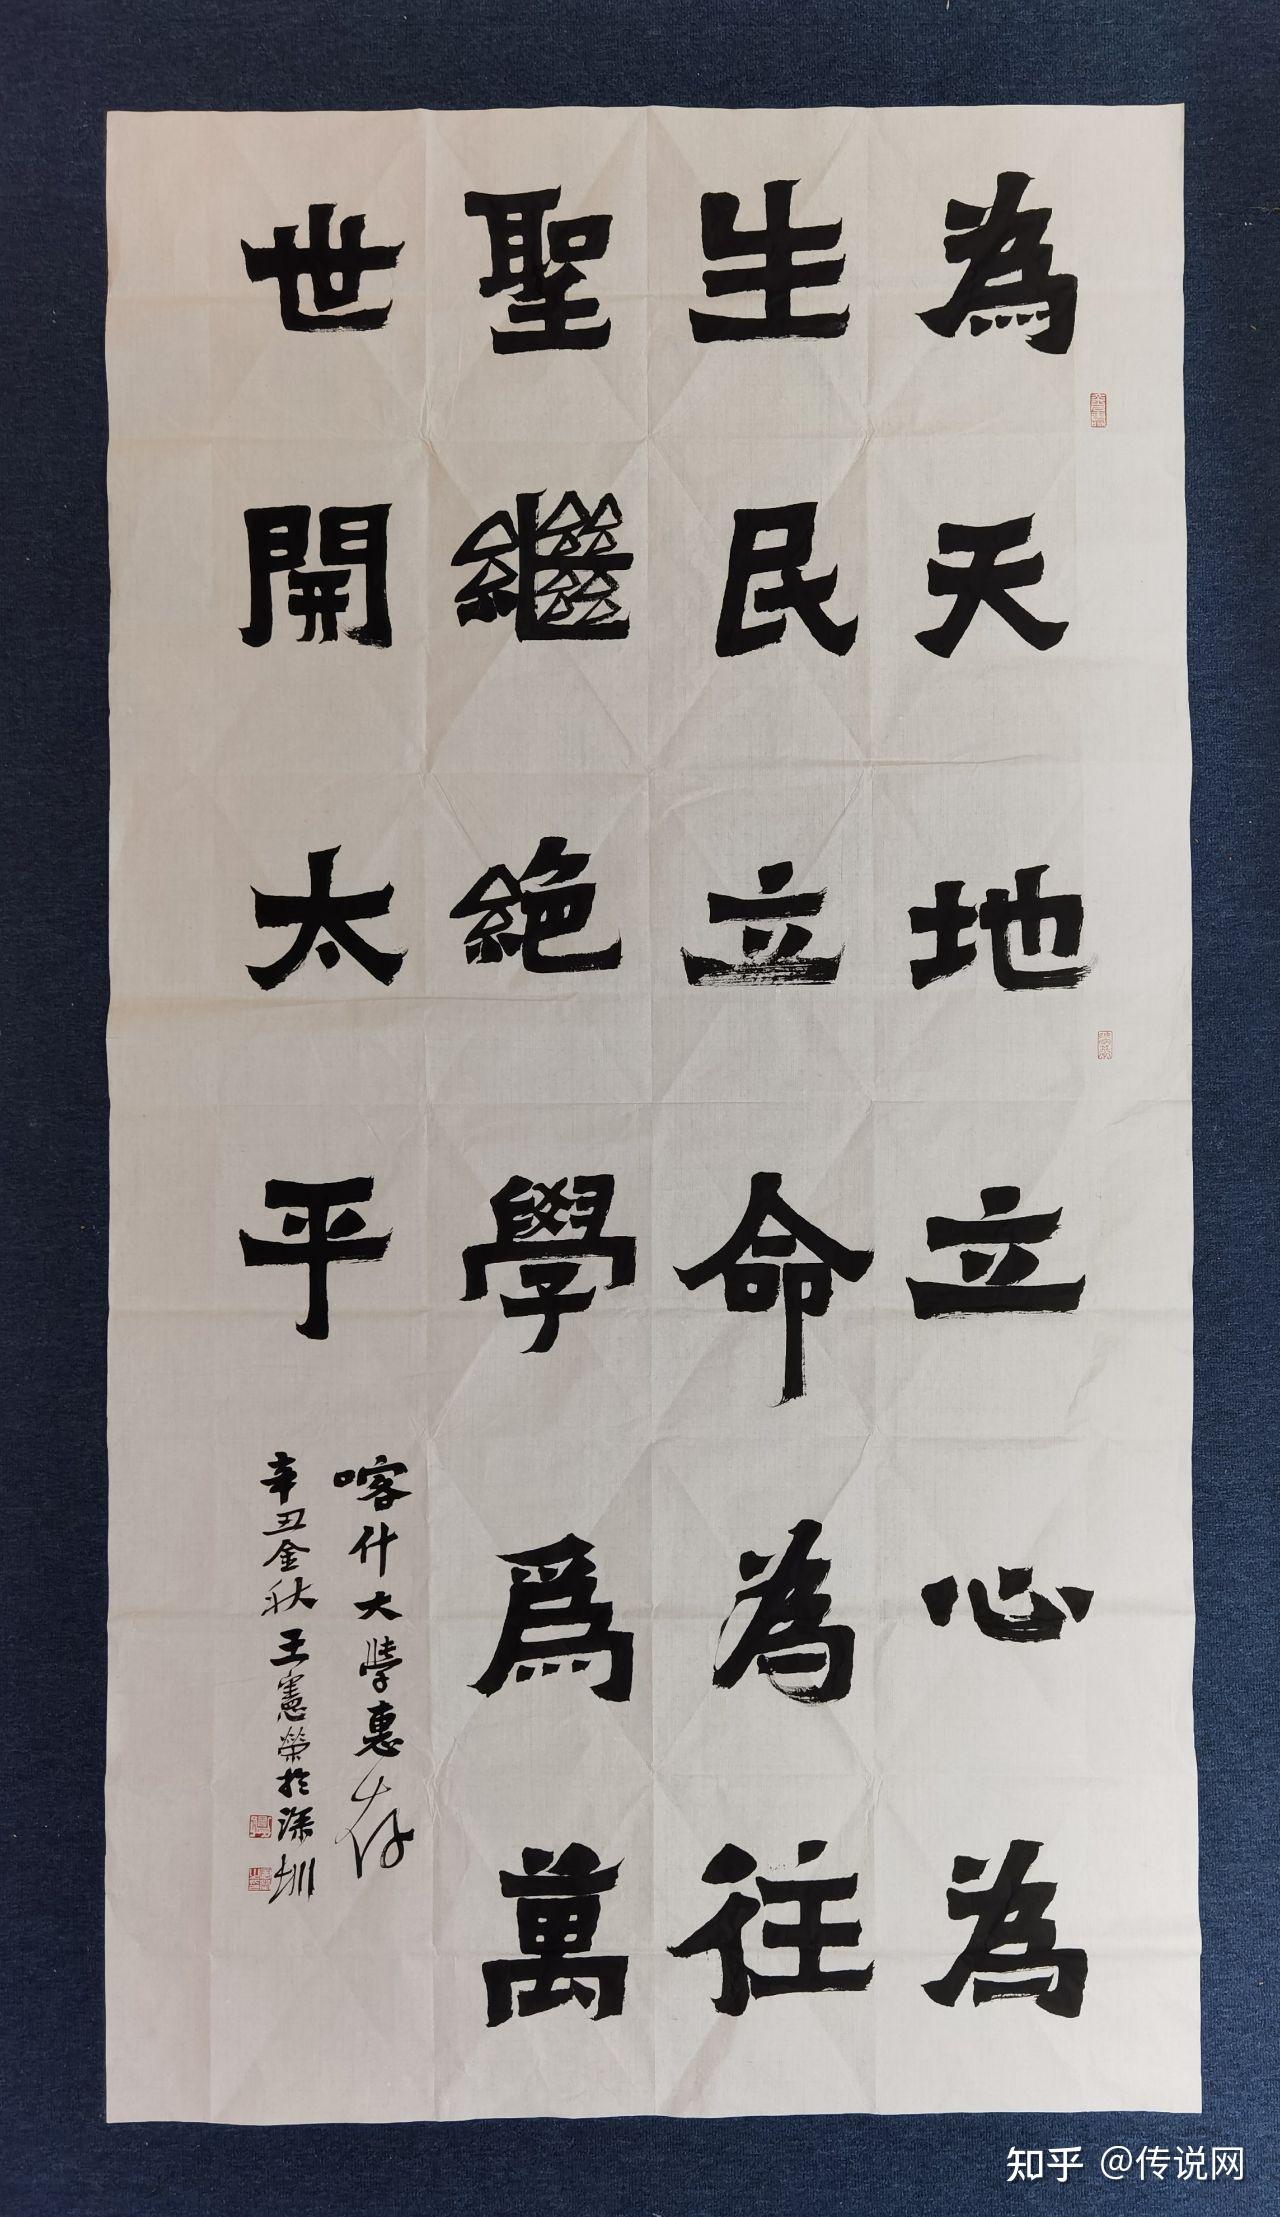 為天地立心為
生民立命為往
聖繼絶學爲萬
世開太平
喀什大學惠存
辛丑金秋王憲榮於深圳
知乎 @传说网